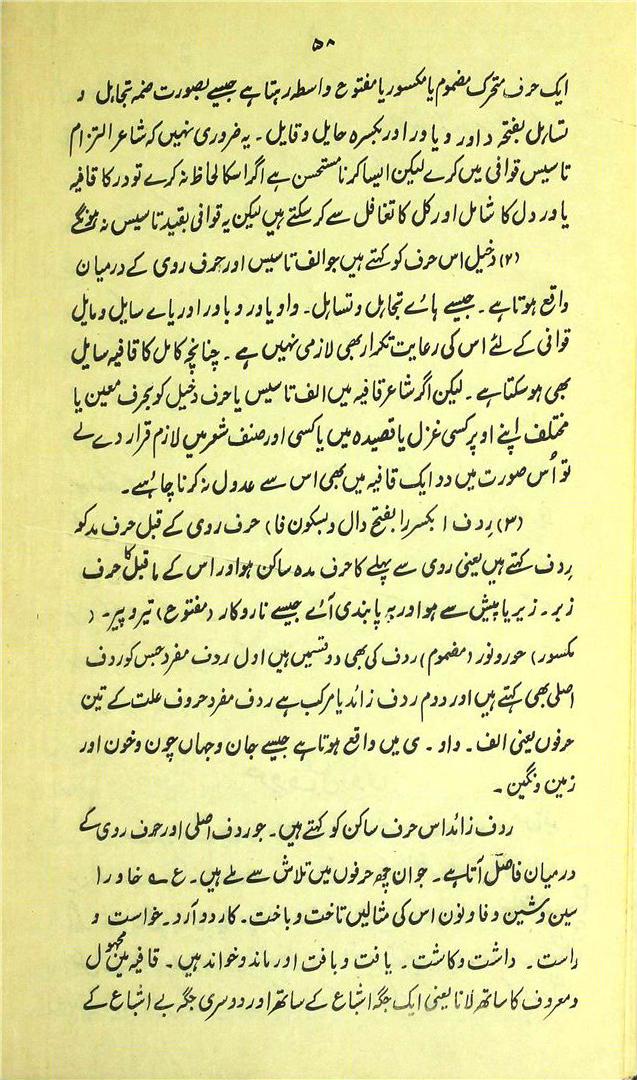 ۵۸
ایک حرف متحرک مضموم یا مکسور یا مفتوح واسطہ رہتا ہے جیسے بصورت ضمہ تجاہل و
تساہل بفتحہ داور و یاور اور بکسرہ حایل و قایل ۔ یہ ضروری نہیں کہ شاعر التزام
تاسیس قوافی میں کرے لیکن ایسا کرنا مستحسن ہے اگر اسکا لحاظ نہ کرے تو در کا قافیہ
یاور دل کا شامل اور کل کا تغافل سے کر سکتے ہیں لیکن یہ قوافی بقید تاسیس نہ ہونگے
(۲) دخیل اس حرف کو کہتے ہیں جو الف تاسیس اور حرف روی کے درمیان
واقع ہوتا ہے ۔ جیسے ہائے تجاہل و تساہل ۔ واو یاور و باور اور یاے سایل و مایل
قوافی کے لئے اس کی رعایت تکرار بھی لازمی نہیں ہے ۔ چنانچہ کامل کا قافیہ سایل
بھی ہو سکتا ہے ۔ لیکن اگر شاعر قافیہ میں الف تاسیس یا حرف دخیل کو بحرف معین یا
مختلف اپنے اوپر کسی غزل یا قصیدہ میں یا کسی اور صنف شعر میں لازم قرار دے لے
تو اُس صورت میں دو ایک قافیہ میں بھی اس سے عدول نہ کرنا چاہئیے ۔
(۳) رِدف (بکسر را بفتح دال و سکون فا) حرف روی کے قبل حرف مد کو
رِدف کہتے ہیں یعنی روی سے پہلے کا حرف مدہ ساکن ہو اور اس کے ماقبل کا حرف
زبر ۔ زیر یا پیش سے ہو اور بہ پابندی آئے جیسے نار و کار (مفتوع) تیر و پیر ۔ (
مکسور) حور و نور (مضموم) ردف کی بھی دو قسمیں ہیں اول ردف مفرد جس کو ردف
اصلی بھی کہتے ہیں اور دوم ردف زائد یا مرکب ہے ردف مفرد حروف علت کے تین
حرفوں یعنی الف ۔ واو ۔ ی میں واقع ہوتا ہے جیسے جان و جہاں چون و خون اور
زمین و نگین ۔
ردف زائد اس حرف ساکن کو کہتے ہیں ۔ جو ردف اصلی اور حرف ردی کے
درمیان فاصل آتا ہے ۔ جو ان چھ حرفوں میں تلاش سے ملے ہیں ۔ ع ؎ خا و را
سین و شین و فا و نون اس کی مثالیں تاخت و باخت ۔ کارد و آرد ۔ خواست و
راست ۔ داشت و کاشت ۔ یافت و بافت اور ماند و خواند ہیں ۔ قافیہ میں مجہول
و معروف کا ساتھ لانا یعنی ایک جگہ اشباع کے ساتھ اور دوسری جگہ بے اشباع کے